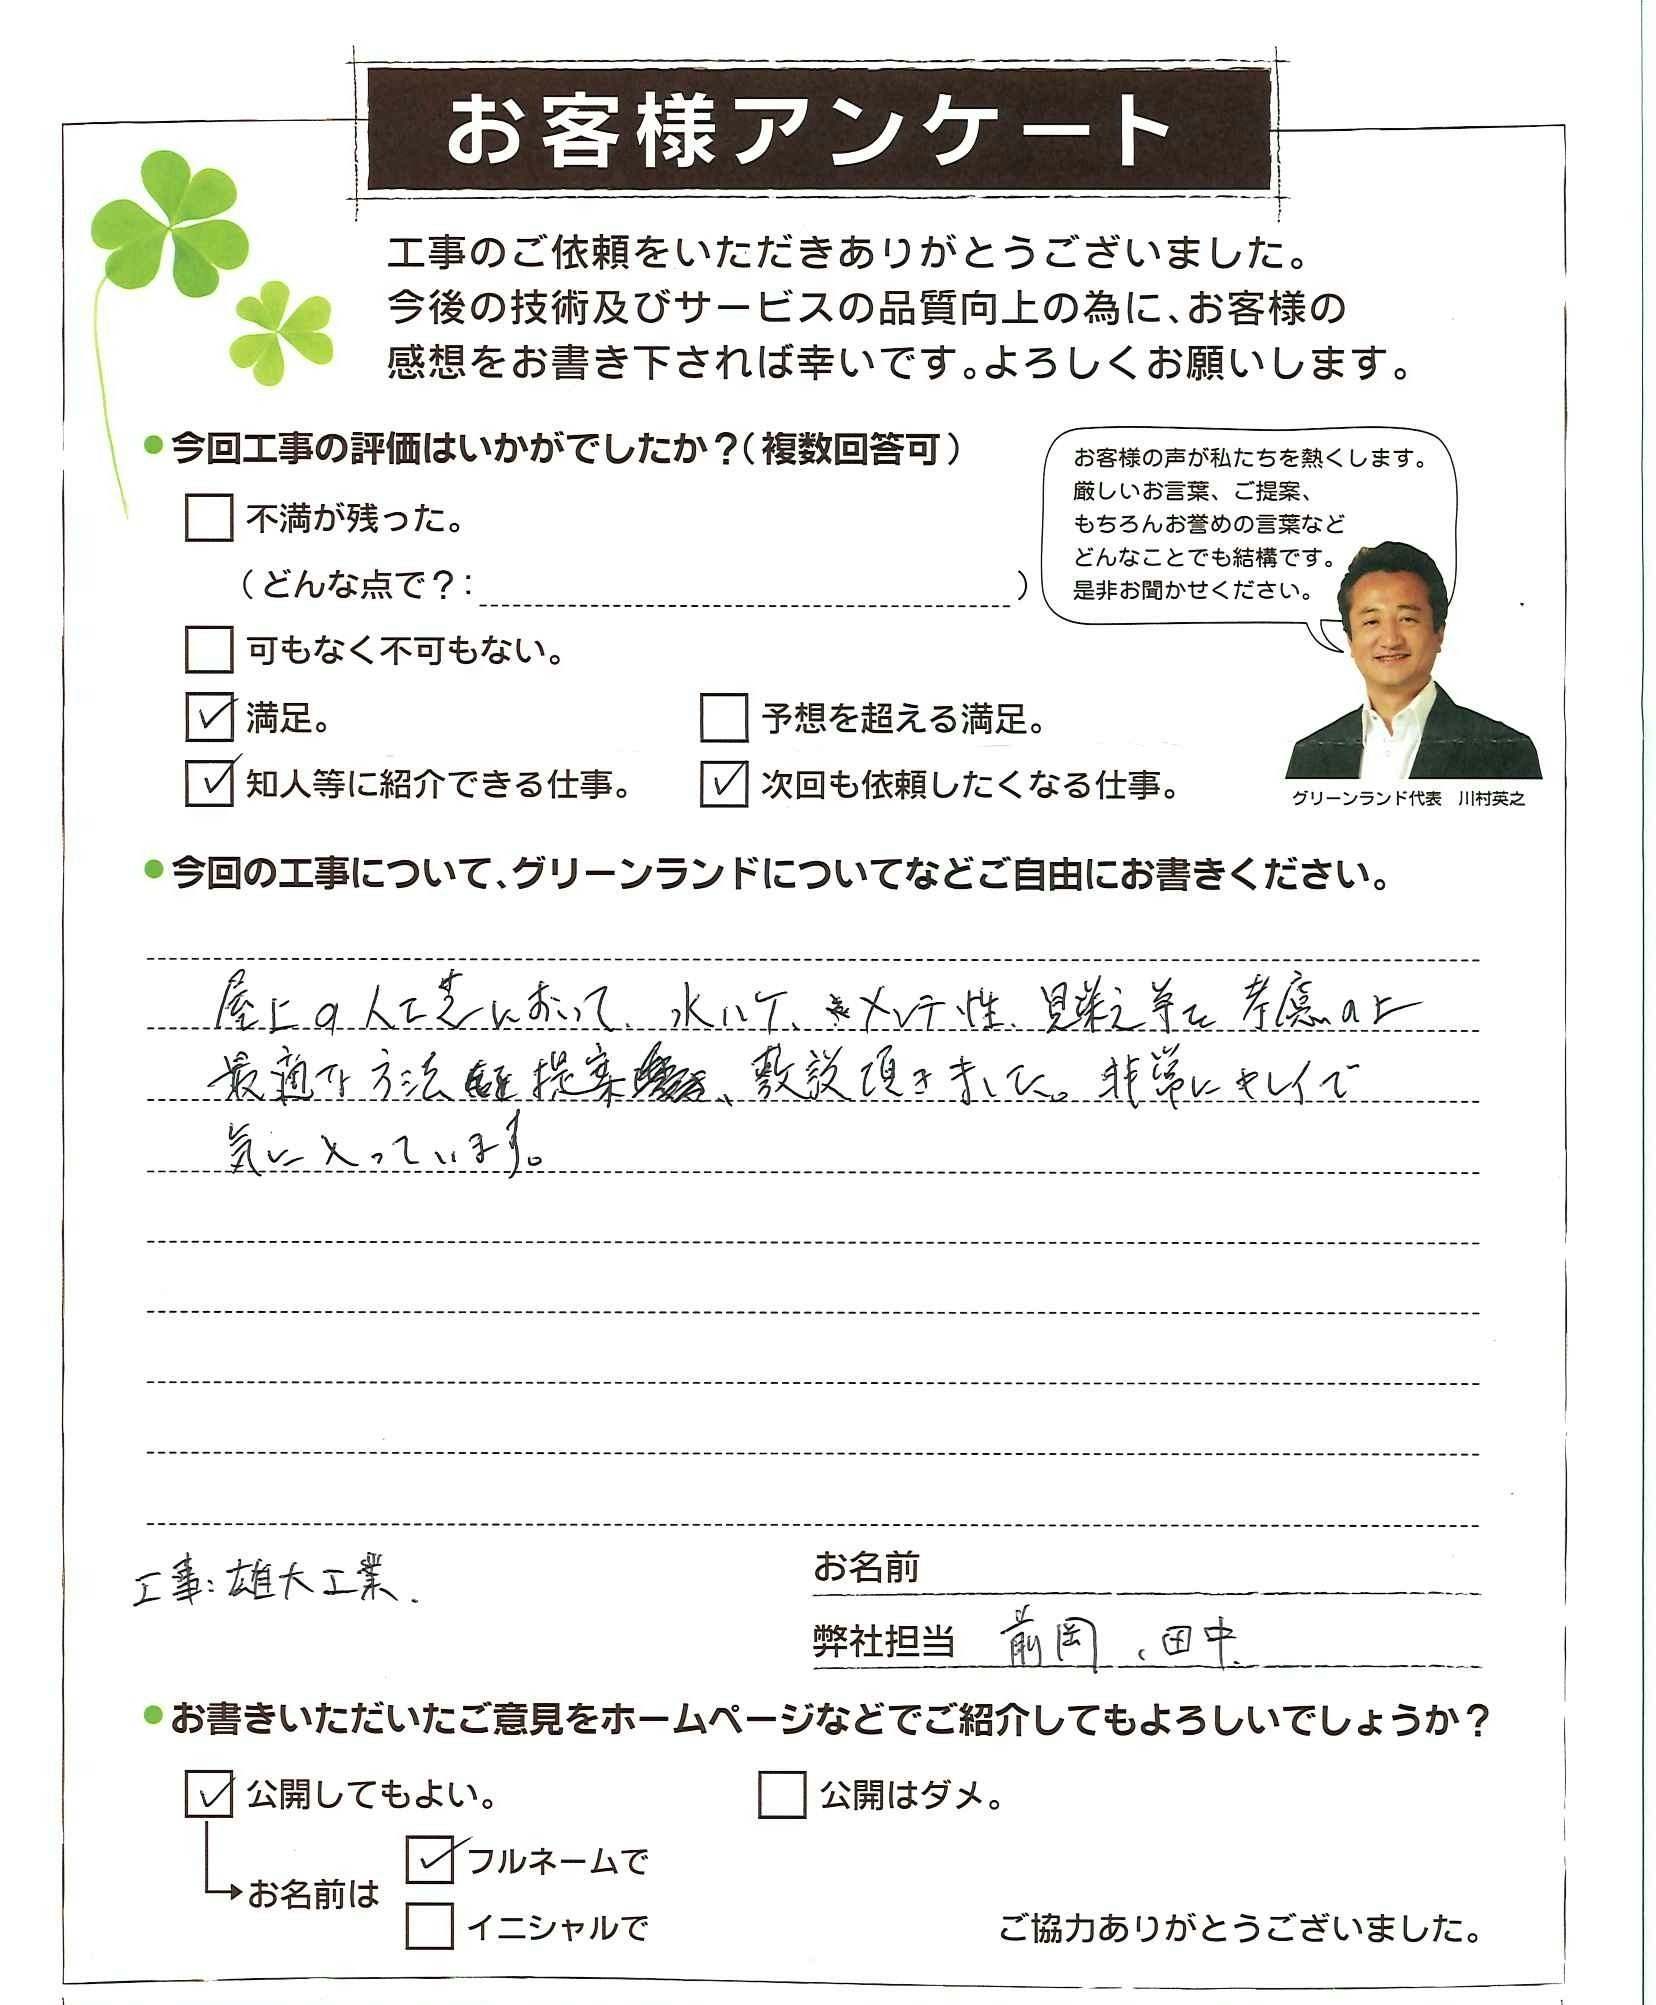 お客様アンケート
工事のご依頼をいただきありがとうございました。
今後の技術及びサービスの品質向上の為に、お客様の
感想をお書き下されば幸いです。よろしくお願いします。
●今回工事の評価はいかがでしたか？（複数回答可）
不満が残った。
（どんな点で？：　）
可もなく不可もない。
満足。
予想を超える満足。
知人等に紹介できる仕事。
次回も依頼したくなる仕事。
お客様の声が私たちを熱くします。
厳しいお言葉、ご提案、
もちろんお誉めの言葉など
どんなことでも結構です。
是非お聞かせください。
グリーンランド代表　川村英之
●今回の工事について、グリーンランドについてなどご自由にお書きください。
屋上の人工芝において、水ハケ、メンテ性、見栄え等を考慮の上
最適な方法を提案、敷設頂きました。非常にキレイで
気に入っています。
工事：雄大工業.
お名前
弊社担当　前岡、田中
●お書きいただいたご意見をホームページなどでご紹介してもよろしいでしょうか？
公開してもよい。
公開はダメ。
お名前は
フルネームで
イニシャルで
ご協力ありがとうございました。